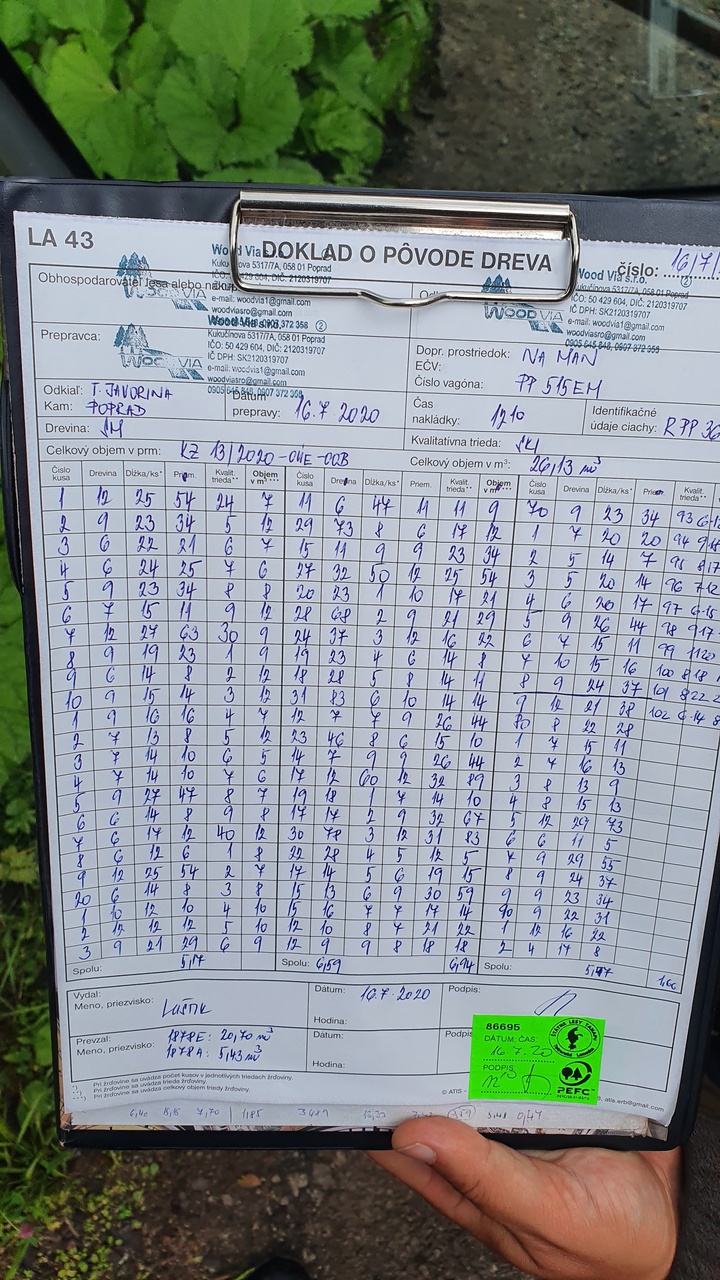 LA 43
DOKLAD O PÔVODE DREVA
číslo: 16/7/
Wood Via s.r.o.
Kukučínova 5317/7A, 058 01 Poprad
IČO: 50 429 604, DIČ: 2120319707
IČ DPH: SK2120319707
e-mail: woodvia1@gmail.com
woodviasro@gmail.com
0905 645 848, 0907 372 358
Obhospodarovateľ lesa alebo
WOOD VIA
Prepravca:
Dopr. prostriedok: NA MAN
EČV:
Číslo vagóna: PP 515EM
Odkiaľ: T. JAVORINA
Kam: POPRAD
Dátum prepravy: 16.7 2020
Čas nakládky: 12 10
Identifikačné údaje ciachy: RPP 36
Drevina: SM
Kvalitatívna trieda:
Celkový objem v prm: KZ 13/2020-04E-00B
Celkový objem v m³: 26,13 m³
Číslo kusa Drevina Dĺžka/ks* Priem. Kvalit. trieda** Objem v m³*** Číslo kusa Drevina Dĺžka/ks* Priem. Kvalit. trieda** Objem v m³*** Číslo kusa Drevina Dĺžka/ks* Priem. Kvalit. trieda**
1 12 25 54 24 7 11 6 47 11 11 9 70 9 23 34 93
2 9 23 34 5 12 29 73 8 6 17 12 1 7 20 20 94
3 6 22 21 6 7 15 11 9 9 23 34 2 5 14 7 95
4 6 24 25 7 6 27 32 50 12 25 54 3 5 20 14 96
5 9 23 34 8 8 20 23 1 10 17 21 4 6 20 17 97
6 7 15 11 9 12 28 68 2 9 21 29 5 9 26 44 98
7 12 27 63 30 9 24 37 3 12 16 22 6 7 15 11 99
8 9 19 23 1 9 19 23 4 6 14 8 7 10 15 16 100
9 6 14 8 2 12 18 28 5 8 14 11 8 9 24 37 101
10 9 15 14 3 12 31 83 6 10 14 14 9 12 21 38 102
1 9 16 16 4 7 12 7 7 9 26 44 80 8 22 28
2 7 13 8 5 12 23 46 8 6 15 10 1 7 15 11
3 7 14 10 6 5 14 7 9 9 26 44 2 7 16 13
4 7 14 10 7 6 17 12 60 12 32 89 3 8 13 9
5 9 27 47 8 7 19 18 1 7 14 10 4 8 15 13
6 6 14 8 9 8 17 17 2 9 32 67 5 12 29 73
7 6 17 12 40 12 30 78 3 12 31 83 6 6 11 5
8 6 12 6 1 8 22 28 4 5 12 5 7 9 29 55
9 12 25 54 2 7 17 14 5 6 19 15 8 9 24 37
20 6 14 8 3 8 15 13 6 9 30 59 9 9 23 34
1 10 12 10 4 10 15 16 7 7 17 14 90 9 22 31
2 12 12 12 5 10 12 10 8 7 21 22 1 12 16 22
3 9 21 29 6 9 12 9 9 8 18 18 2 4 17 8
Spolu: 5,17 Spolu: 6,59 6,94 Spolu: 5,77 1,66
Vydal:
Meno, priezvisko:
Dátum: 16.7.2020
Hodina:
Podpis:
Prevzal: 1878E: 20,70 m³
Meno, priezvisko: 1878A: 5,43 m³
Dátum:
Hodina:
Podpis
86695
DÁTUM: ČAS:
16.7.20
PODPIS
ŠTÁTNE LESY TANAPU
PEFC
Pri žrďovine sa uvádza počet kusov v jednotlivých triedach žrďoviny.
Pri žrďovine sa uvádza trieda žrďoviny.
Pri žrďovine sa uvádza celkový objem triedy žrďoviny.
© ATIS
atis.erb@gmail.com